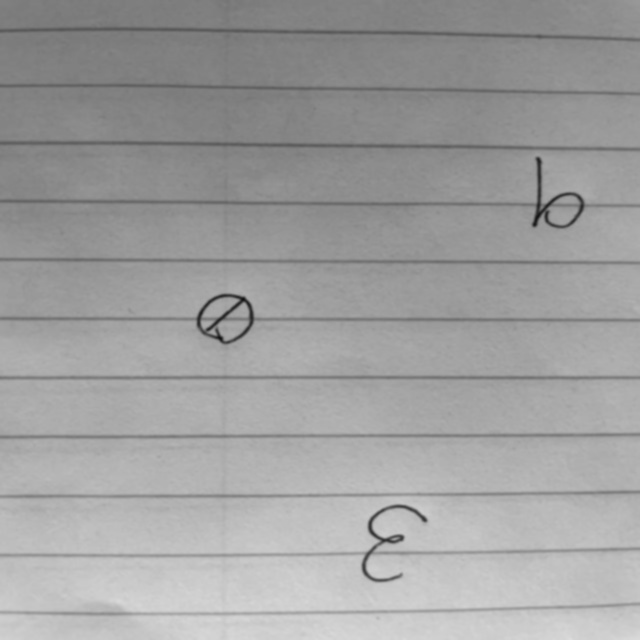 b
∅
ε